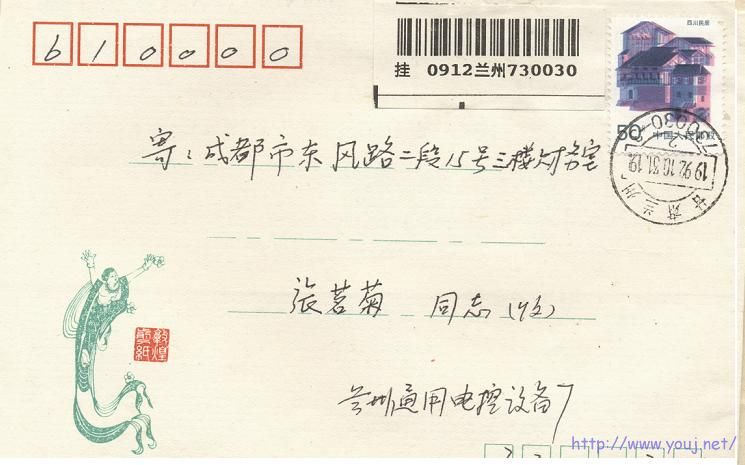 610000
挂 0912兰州730030
四川民居
50 中国人民邮政
730030
1992.10.31.19
甘肃兰州
寄：成都市东风路二段15号三楼财务室
张茗菊 同志(收)
敦煌剪紙
兰州通用电控设备厂
http://www.youj.net/